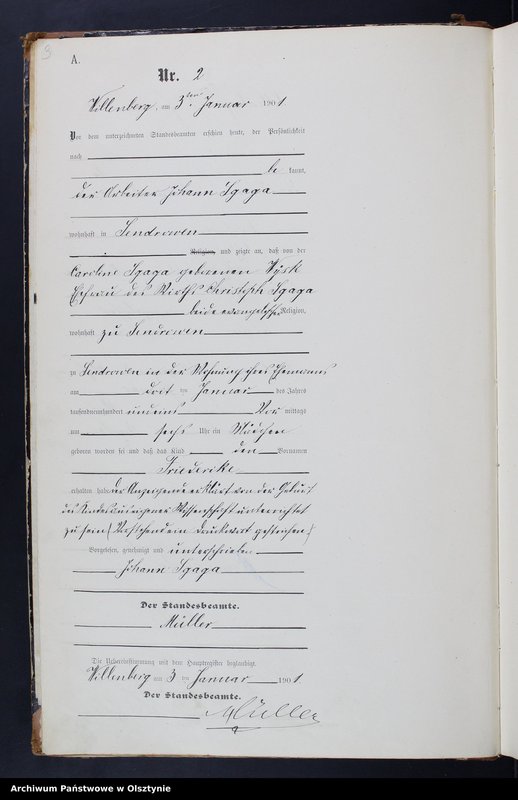 3
A.
Nr. 2
Willenberg, am 3ten Januar 1901
Vor dem unterzeichneten Standesbeamten erschien heute, der Persönlichkeit
nach
be kannt,
der Arbeiter Johann Sgaga
wohnhaft in Sendrowen
Religion, und zeigte an, daß von der
Caroline Sgaga geborenen Wysk
Ehefrau des Wirths Christoph Sgaga
beide evangelischer Religion,
wohnhaft zu Sendrowen
zu Sendrowen in der Wohnung ihres Ehemanns
am drei ten Januar des Jahres
tausendneunhundert und eins Vor mittags
um sechs Uhr ein Mädchen
geboren worden sei und daß das Kind den Vornamen
Friederike
erhalten habe. der Anzeigende erklärt von der Geburt
des Kindes aus eigener Wissenschaft unterrichtet
zu sein (Vorstehend ein Druckwort gestrichen)
Vorgelesen, genehmigt und unterschrieben
Johann Sgaga
Der Standesbeamte.
Müller
Die Uebereinstimmung mit dem Hauptregister beglaubigt.
Willenberg am 3 ten Januar 1901
Der Standesbeamte.
Müller
Archiwum Państwowe w Olsztynie